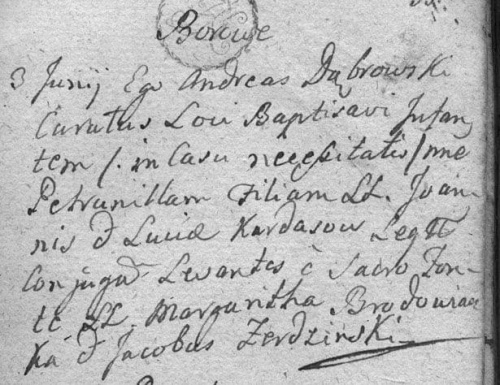 Borowe
3 Junij Ego Andreas Dąbrowski
Curatus Loci Baptisavi Infan
tem /. in Casu necessitatis / nne
Petrunillam Filiam LL. Joan
nis & Luciæ Kardasow Legtt
Conjugũ Levantes è Sacro Fon
te, LL. Margaritha Brodowiac
ka & Jacobus Zerdzinski